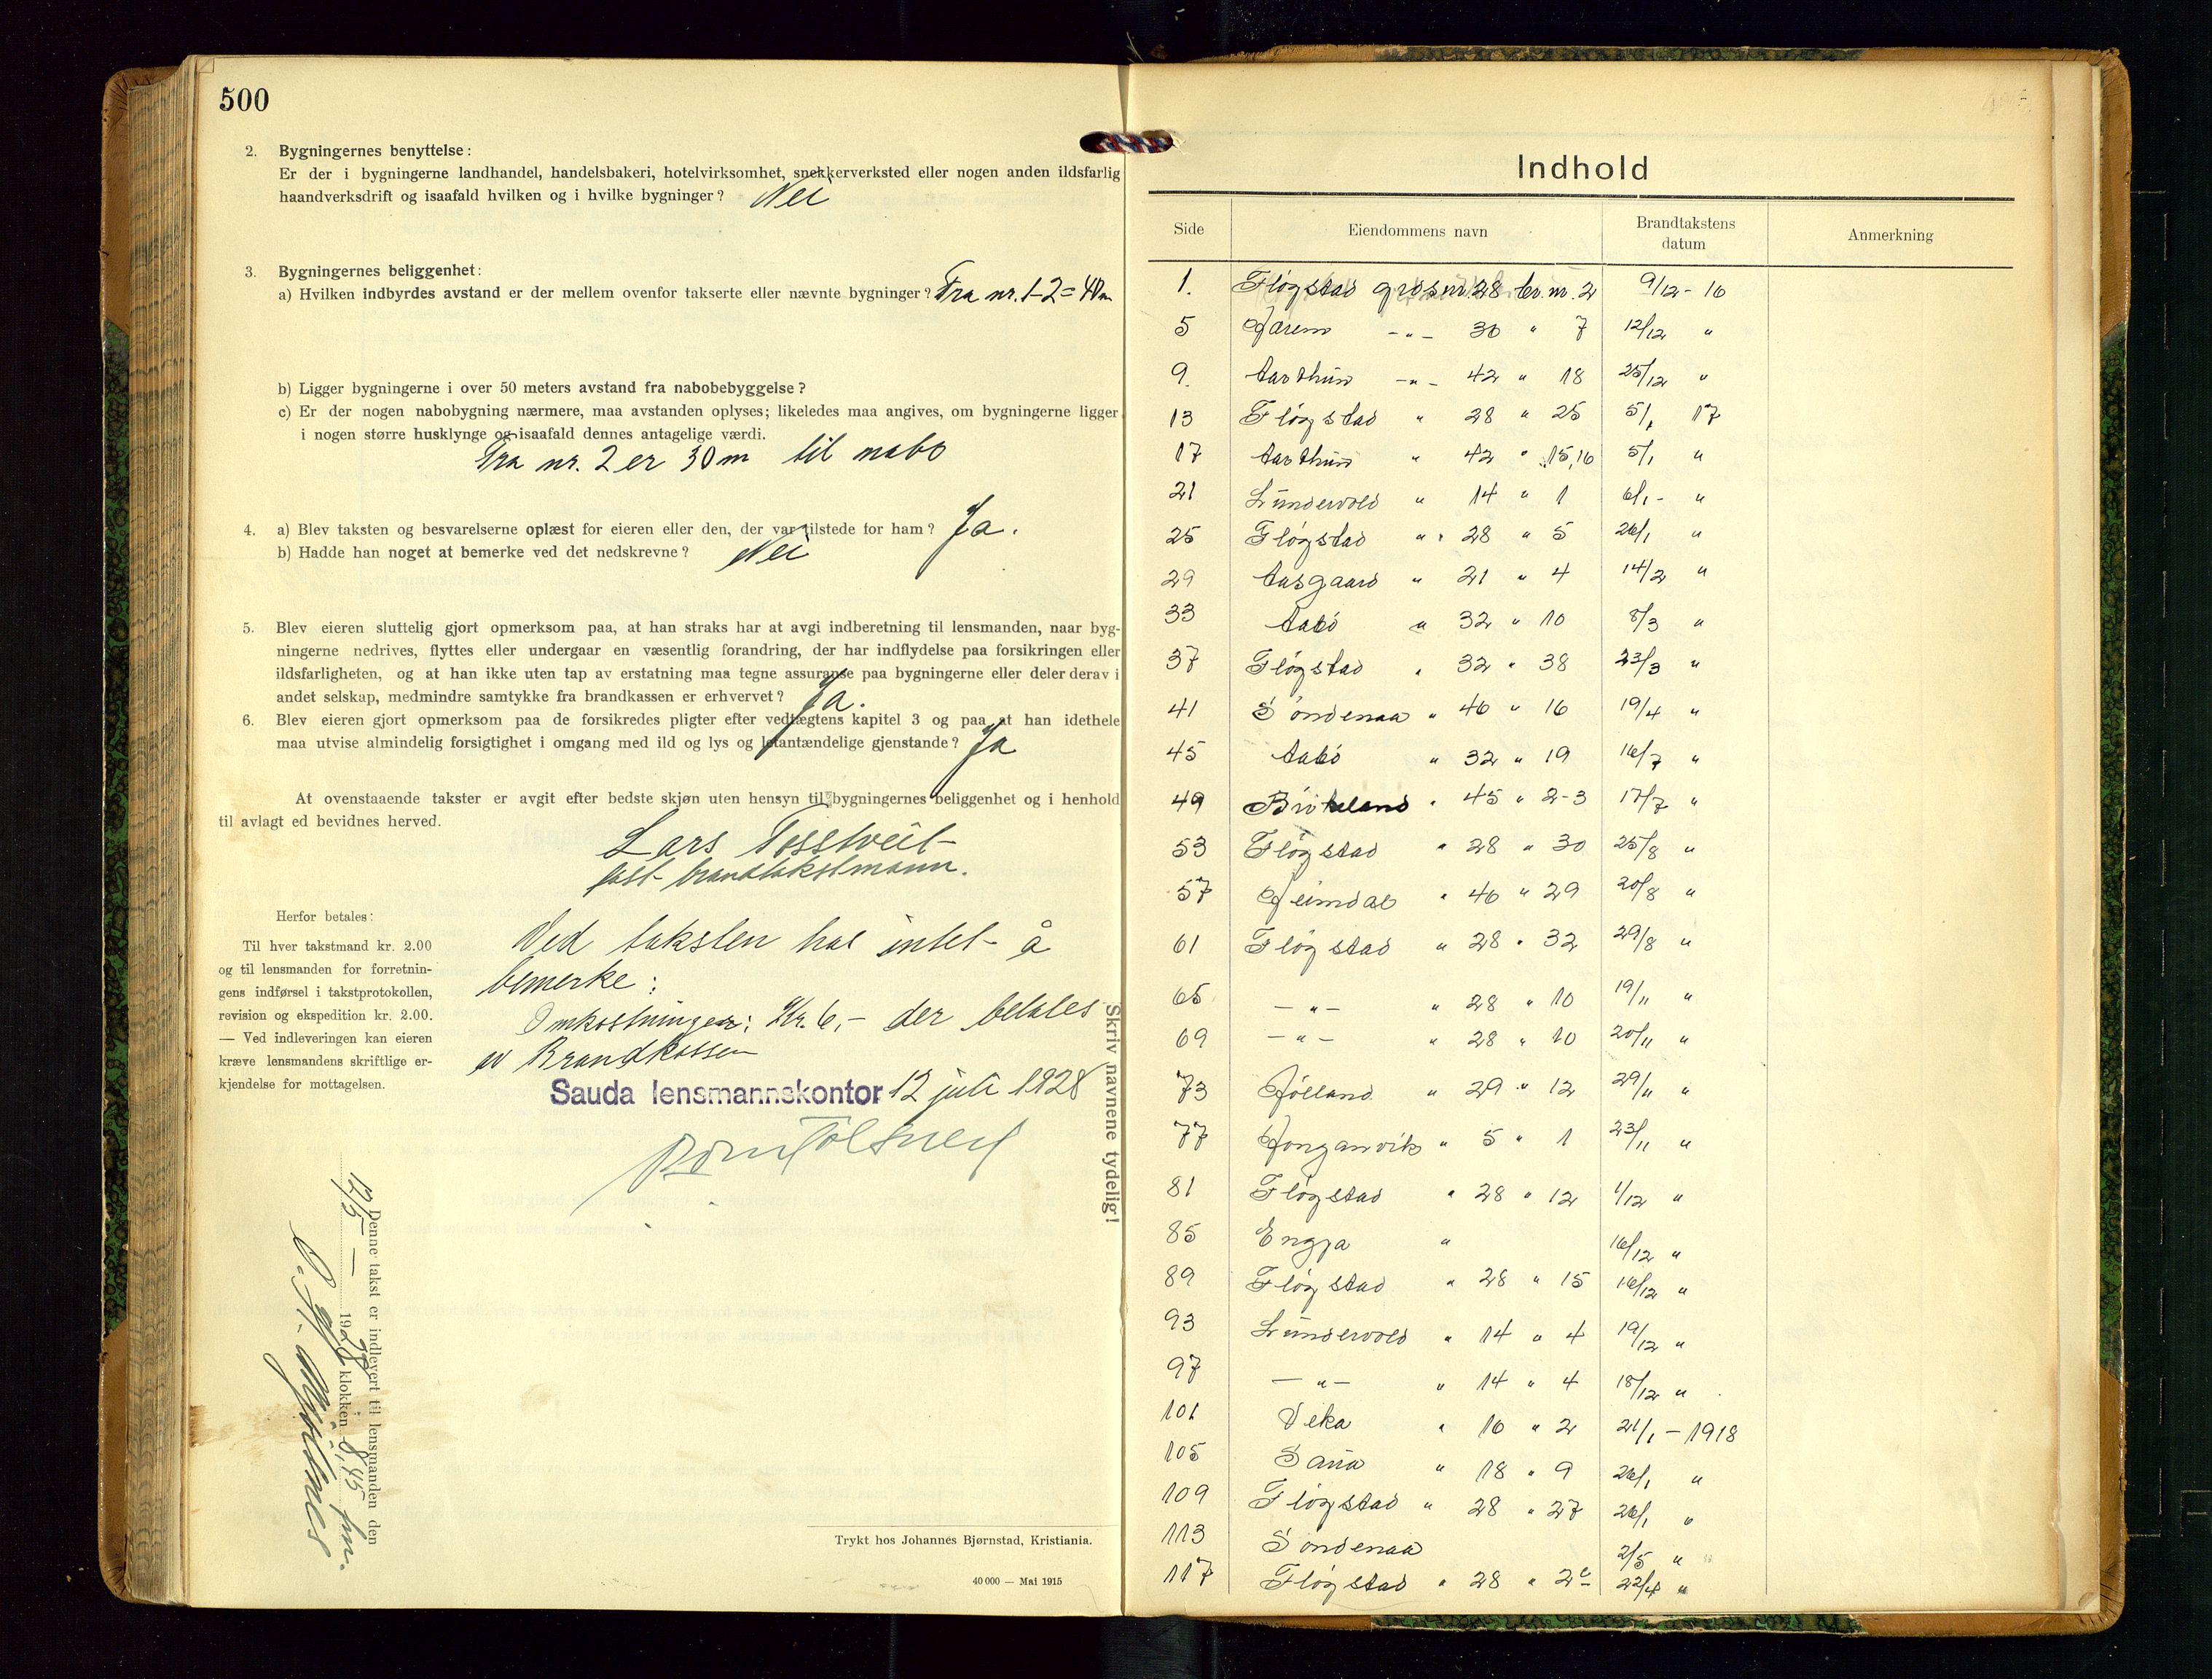 500
2. Bygningernes benyttelse:
Er der i bygningerne landhandel, handelsbakeri, hotelvirksomhet, snekkerverksted eller nogen anden ildsfarlig
haandverksdrift og isaafald hvilken og i hvilke bygninger? Nei
3. Bygningernes beliggenhet:
a) Hvilken indbyrdes avstand er der mellem ovenfor takserte eller nævnte bygninger? Fra nr. 1-2 = 40 m
b) Ligger bygningerne i over 50 meters avstand fra nabobebyggelse?
c) Er der nogen nabobygning nærmere, maa avstanden oplyses; likeledes maa angives, om bygningerne ligger
i nogen større husklynge og isaafald dennes antagelige værdi.
Fra nr. 2 er 30 m til nabo
4. a) Blev taksten og besvarelserne oplæst for eieren eller den, der var tilstede for ham? Ja.
b) Hadde han noget at bemerke ved det nedskrevne? Nei
5. Blev eieren sluttelig gjort opmerksom paa, at han straks har at avgi indberetning til lensmanden, naar byg-
ningerne nedrives, flyttes eller undergaar en væsentlig forandring, der har indflydelse paa forsikringen eller
ildsfarligheten, og at han ikke uten tap av erstatning maa tegne assuranse paa bygningerne eller deler derav i
andet selskap, medmindre samtykke fra brandkassen er erhvervet? Ja.
6. Blev eieren gjort opmerksom paa de forsikredes pligter efter vedtægtens kapitel 3 og paa, at han idethele
maa utvise almindelig forsigtighet i omgang med ild og lys og letantændelige gjenstande? Ja
At ovenstaaende takster er avgit efter bedste skjøn uten hensyn til bygningernes beliggenhet og i henhold
til avlagt ed bevidnes herved.
Lars Tosstveit
fast brandtakstmann.
Herfor betales:
Til hver takstmand kr. 2.00
og til lensmanden for forretnin-
gens indførsel i takstprotokollen,
revision og ekspedition kr. 2.00.
— Ved indleveringen kan eieren
kræve lensmandens skriftlige er-
kjendelse for mottagelsen.
Ved taksten har intet å
bemerke:
Omkostninger: Kr. 6,- der betales
av Brandkassen
Sauda lensmannskontor 12 juli 1928
Skriv navnene tydelig!
Denne takst er indlevert til lensmanden den
12/5 — 1928 klokken 8,45 fm.
Trykt hos Johannes Bjørnstad, Kristiania.
40 000 — Mai 1915
Indhold
Side Eiendommens navn Brandtakstens datum Anmerkning
1. Fløgstad grdsnr. 28 br. nr. 2 9/12 - 16
5 Jærem -"- 30 " 7 12/12 "
9. Aarthun -"- 42 " 18 25/12 "
13 Fløgstad " 28 " 25 5/1 17
17 Aarthun " 42 " 15,16 5/1 "
21 Lundevold " 14 " 1 6/1 - "
25 Fløgstad " 28 " 5 26/1 "
29 Aasgaard " 21 " 4 14/2 "
33 Aabö " 32 " 10 8/3 "
37 Fløgstad " 32 " 38 23/3 "
41 Söndenaa " 46 " 16 19/4 "
45 Aabö " 32 " 19 16/7 "
49 Birkeland " 45 " 2-3 17/7 "
53 Fløgstad " 28 " 30 25/8 "
57 Heimdal " 46 " 29 20/8 "
61 Fløgstad " 28 " 32 29/8 "
65 -"- " 28 " 10 19/11 "
69 -"- " 28 " 10 20/11 "
73 Hølland " 29 " 12 29/11 "
77 Honganvik " 5 " 1 23/11 "
81 Fløgstad " 28 " 12 1/12 "
85 Engja " 16/12 "
89 Fløgstad " 28 " 15 16/12 "
93 Lundevold " 14 " 4 19/12 "
97 -"- " 14 " 4 18/12 "
101 Veka " 16 " 2 21/1 - 1918
105 Saua " 18 " 9 26/1 "
109 Fløgstad " 28 " 27 26/1 "
113 Söndenaa 2/5 "
117 Fløgstad " 28 " 22/4 "